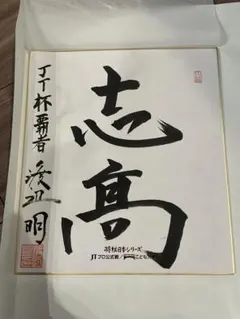 志高
JT杯覇者
渡辺明
将棋日本シリーズ
JTプロ公式戦/
こども大会